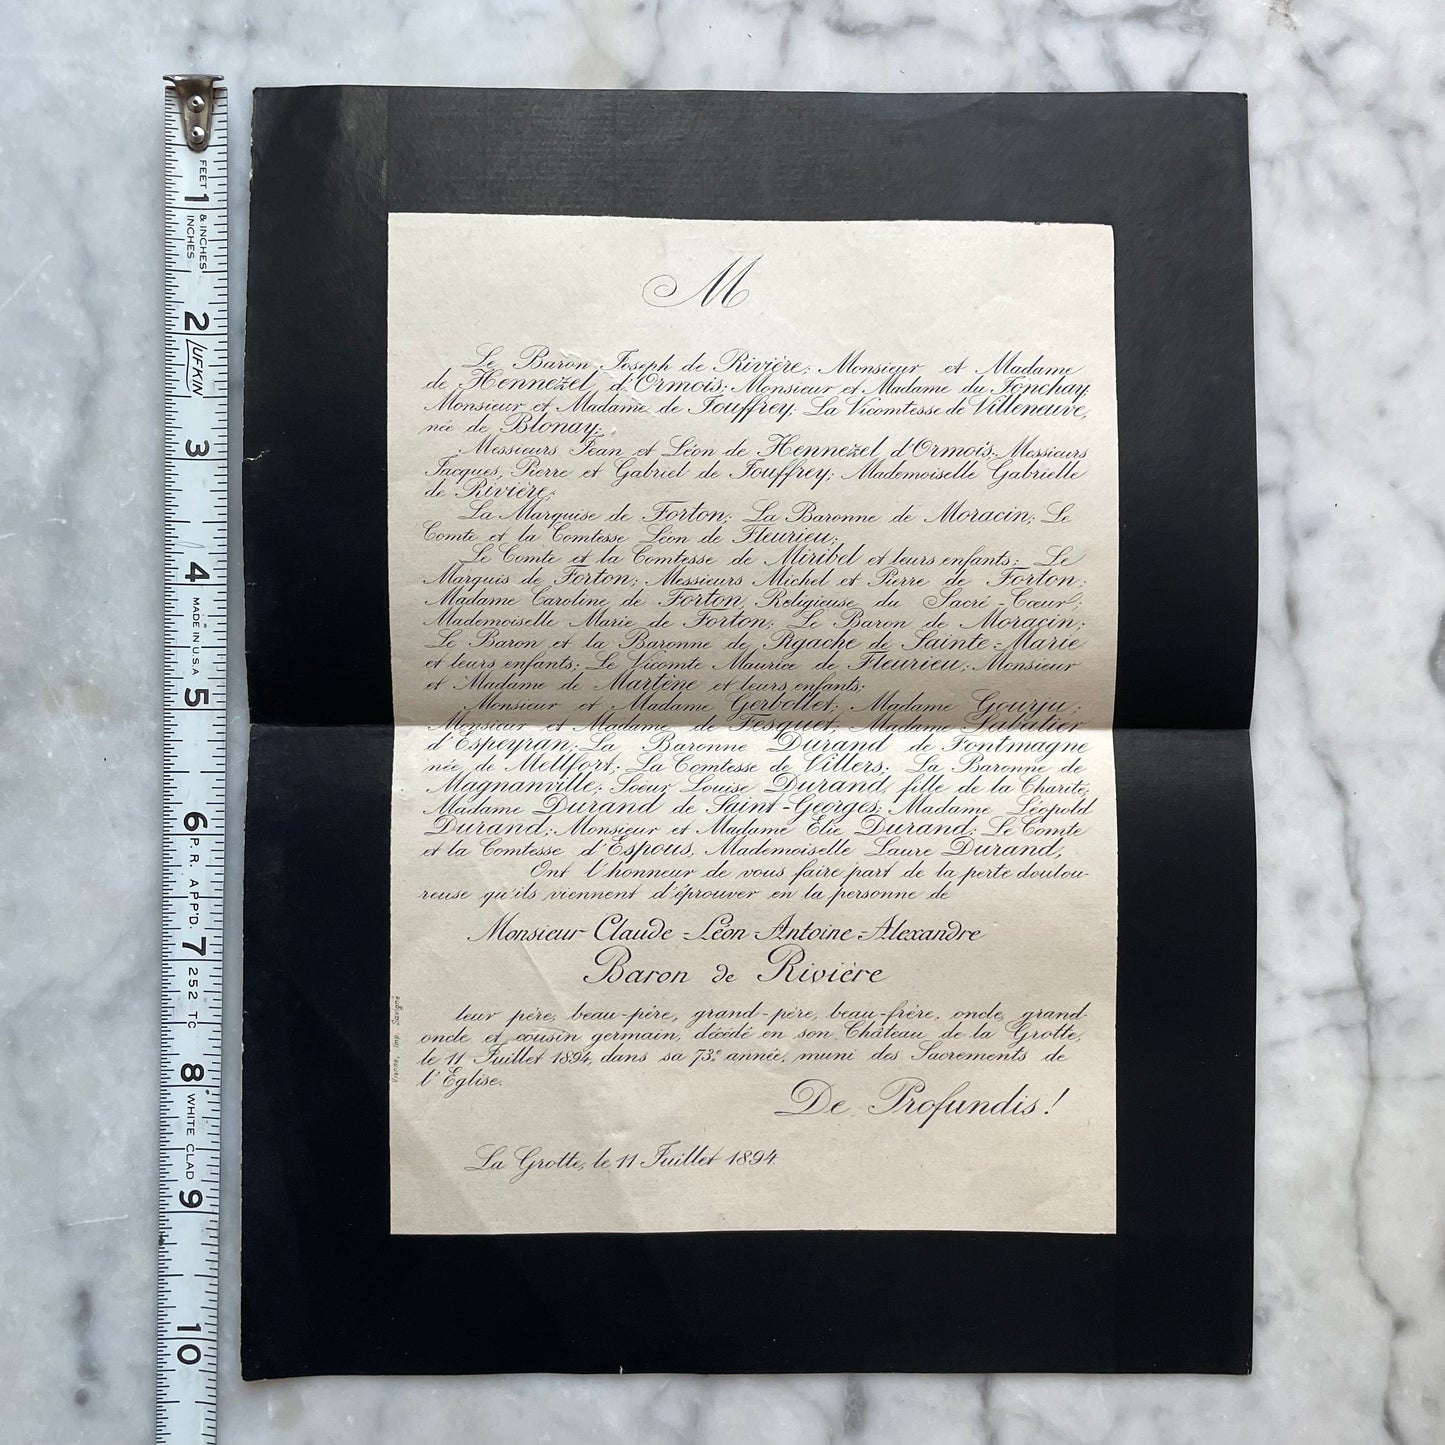 M
Le Baron Joseph de Rivière; Monsieur et Madame
de Hennezel d'Ormois; Monsieur et Madame du Fonchay
Monsieur et Madame de Jouffrey; La Vicomtesse de Villeneuve,
née de Blonay;
Messieurs Jean et Léon de Hennezel d'Ormois; Messieurs
Jacques, Pierre et Gabriel de Jouffrey; Mademoiselle Gabrielle
de Rivière;
La Marquise de Forton; La Baronne de Moracin; Le
Comte et la Comtesse Léon de Fleurieu;
Le Comte et la Comtesse de Miribel et leurs enfants; Le
Marquis de Forton; Messieurs Michel et Pierre de Forton;
Madame Caroline de Forton, Religieuse du Sacré-Cœur;
Mademoiselle Marie de Forton; Le Baron de Moracin;
Le Baron et la Baronne de Rgache de Sainte-Marie
et leurs enfants; Le Vicomte Maurice de Fleurieu; Monsieur
et Madame de Martène et leurs enfants;
Monsieur et Madame Gerbollet; Madame Gourju;
Monsieur et Madame de Fesquet, Madame Sabatier
d'Espeyran; La Baronne Durand de Fontmagne
née de Mellfort; La Comtesse de Villers; La Baronne de
Magnanville; Soeur Louise Durand, fille de la Charité;
Madame Durand de Saint-Georges; Madame Léopold
Durand; Monsieur et Madame Elie Durand; Le Comte
et la Comtesse d'Espous, Mademoiselle Laure Durand,
Ont l'honneur de vous faire part de la perte doulou-
reuse qu'ils viennent d'éprouver en la personne de
Monsieur Claude-Léon-Antoine-Alexandre
Baron de Rivière
leur père, beau-père, grand-père, beau-frère, oncle, grand-
oncle et cousin germain, décédé en son Château de la Grotte,
le 11 Juillet 1894, dans sa 73e année, muni des Sacrements de
l'Eglise.
De Profundis!
La Grotte, le 11 Juillet 1894.
Vienne, Imp. Savigné
FEET & INCHES
INCHES
1
2
LUFKIN
3
4
MADE IN U.S.A
5
6
P.R. APP'D.
7
252 TC
8
WHITE CLAD
9
10